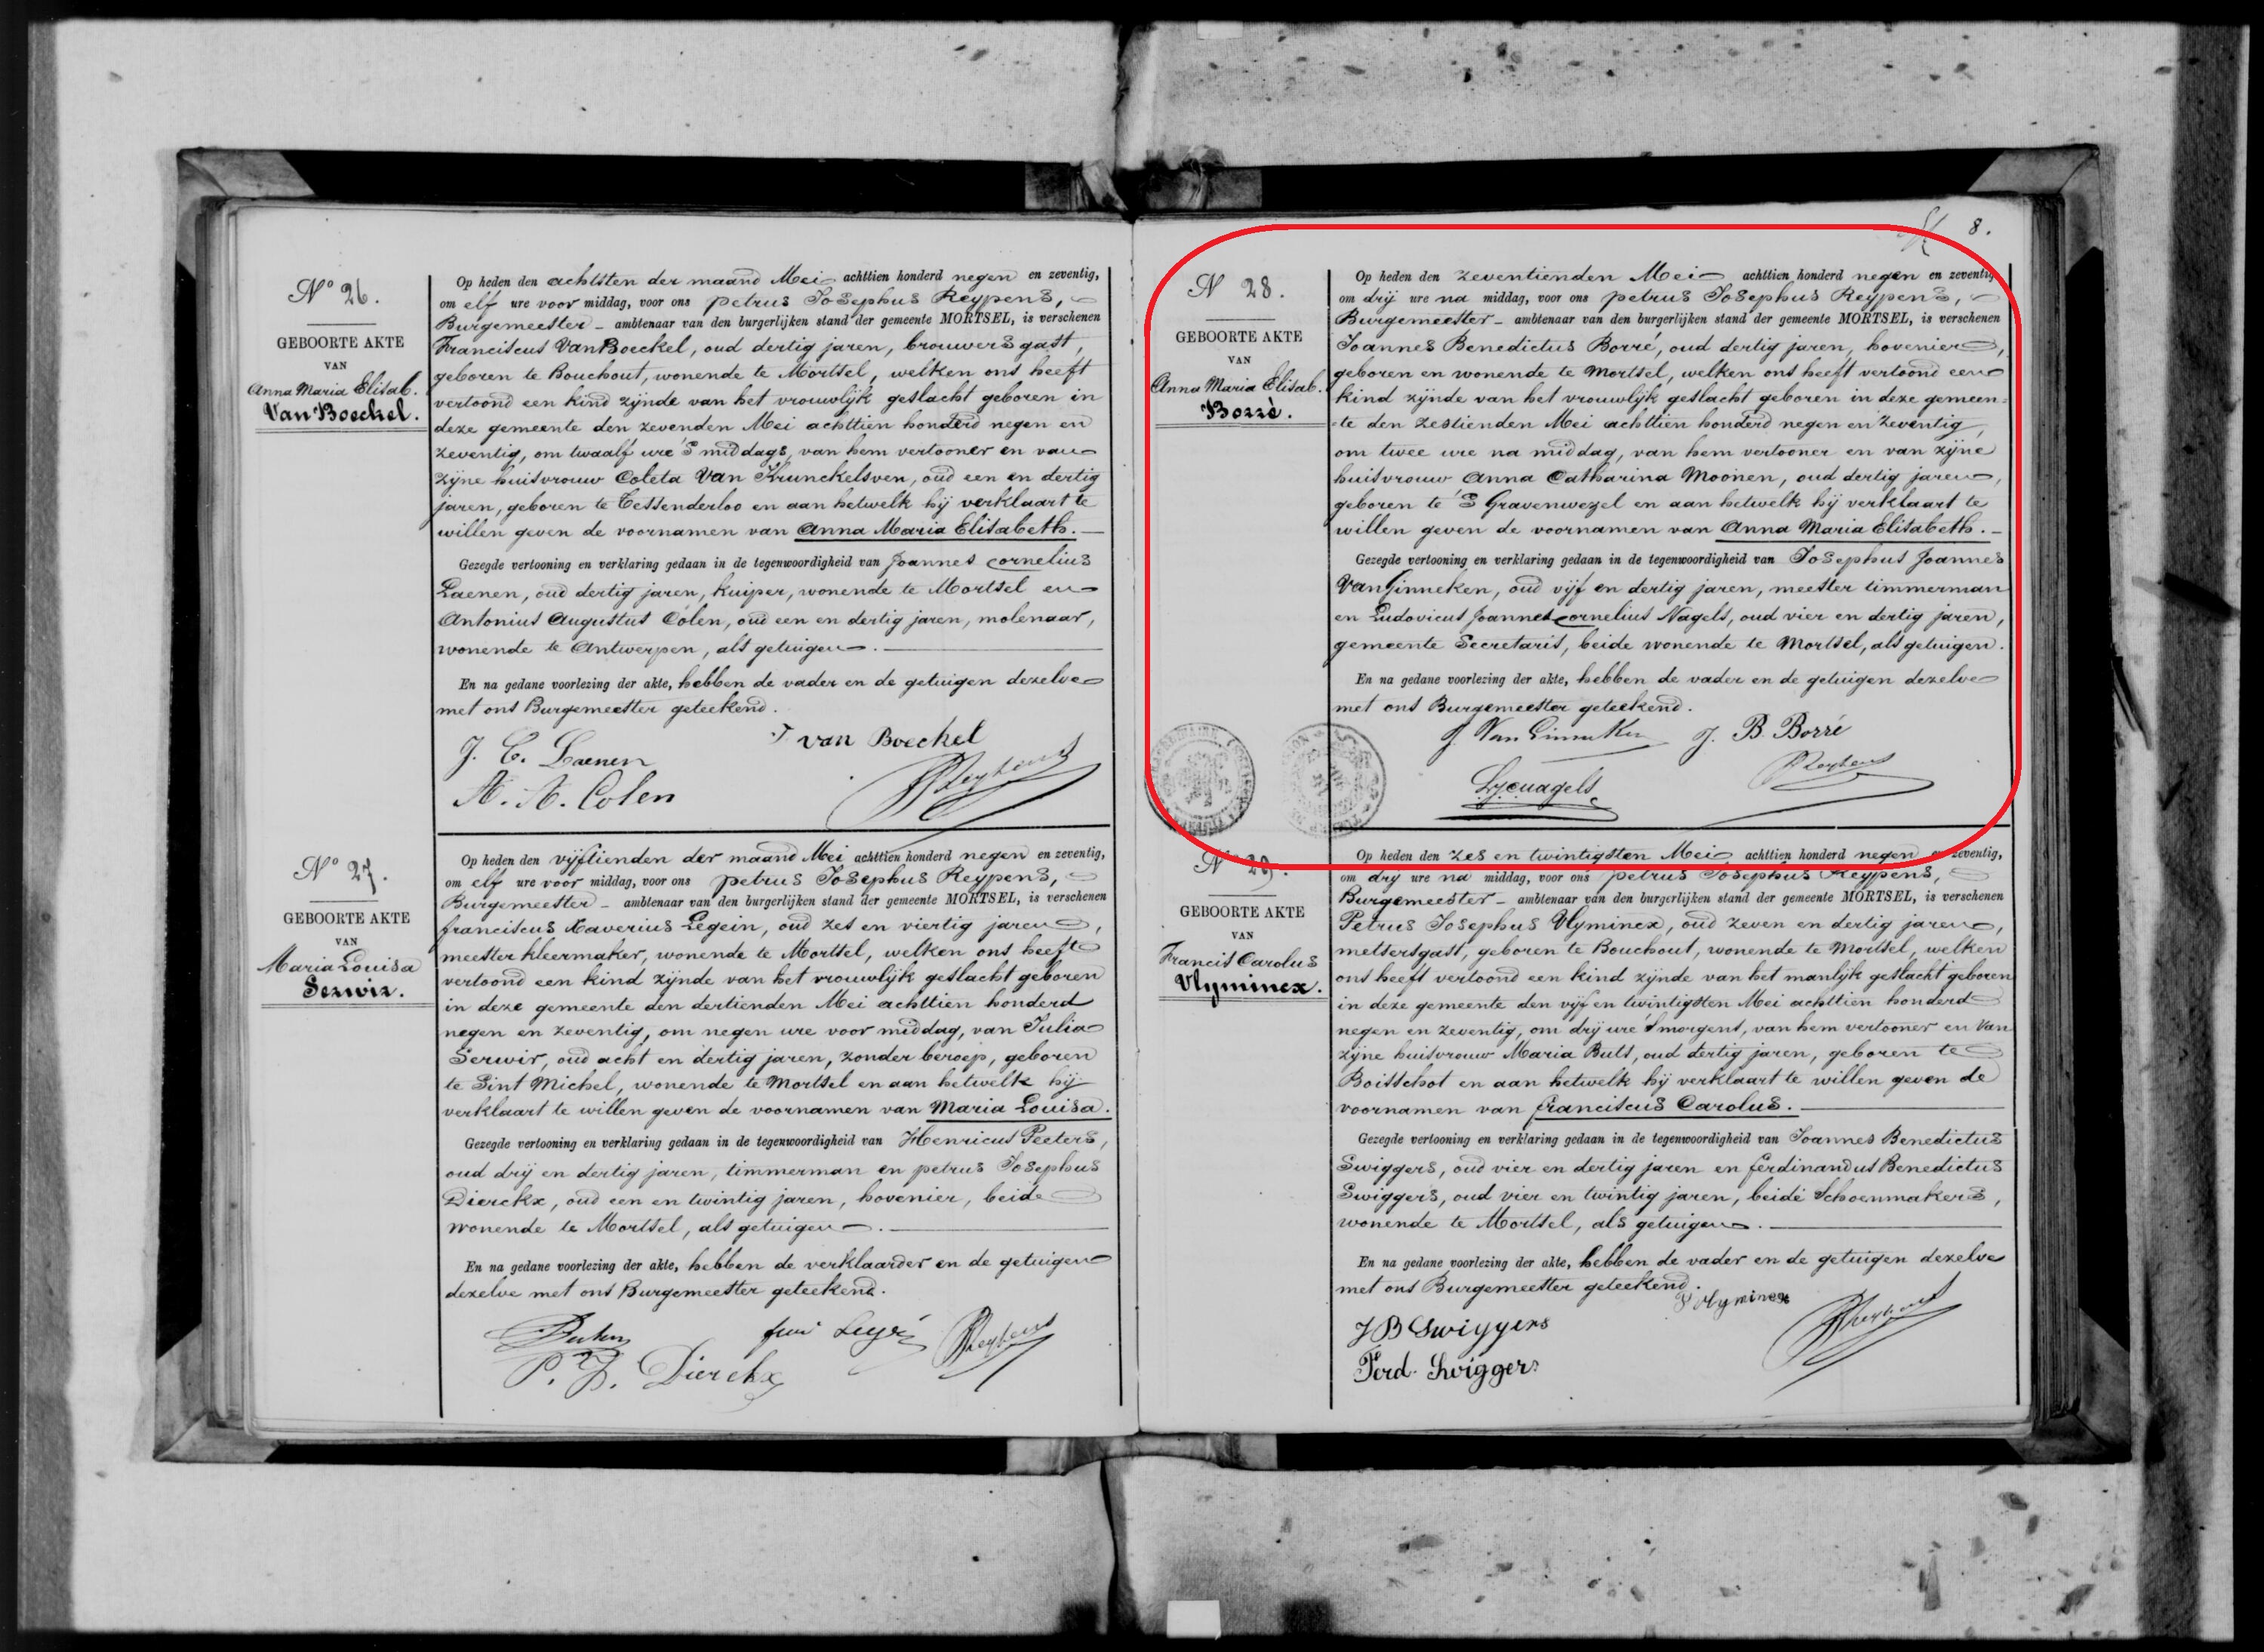 Nº 26.
GEBOORTE AKTE
VAN
Anna Maria Elisab.
Van Boeckel.
Op heden den achtsten der maand Mei achttien honderd negen en zeventig,
om elf ure voor middag, voor ons petrus Josephus Reypens,
Burgemeester - ambtenaar van den burgerlijken stand der gemeente MORTSEL, is verschenen
Franciscus Van Boeckel, oud dertig jaren, brouwers gast,
geboren te Bouchout, wonende te Mortsel, welken ons heeft
vertoond een kind zijnde van het vrouwlijk geslacht geboren in
deze gemeente den zevenden Mei achttien honderd negen en
zeventig, om twaalf ure 's middags, van hem vertooner en van
zijne huisvrouw Coleta Van Krunckelsven, oud een en dertig
jaren, geboren te Tessenderloo en aan hetwelk hij verklaart te
willen geven de voornamen van Anna Maria Elisabeth.
Gezegde vertooning en verklaring gedaan in de tegenwoordigheid van Joannes cornelius
Laenen, oud dertig jaren, kuiper, wonende te Mortsel en
Antonius Augustus Colen, oud een en dertig jaren, molenaar,
wonende te Antwerpen, als getuigen.
En na gedane voorlezing der akte, hebben de vader en de getuigen dezelve
met ons Burgemeester geteekend.
van Boeckel
J. C. Laenen
A. A. Colen
PReypens
Nº 27.
GEBOORTE AKTE
VAN
Maria Louisa
Serwir.
Op heden den vijftienden der maand Mei achttien honderd negen en zeventig,
om elf ure voor middag, voor ons petrus Josephus Reypens,
Burgemeester - ambtenaar van den burgerlijken stand der gemeente MORTSEL, is verschenen
franciscus Xaverius Legein, oud zes en viertig jaren,
meester kleermaker, wonende te Mortsel, welken ons heeft
vertoond een kind zijnde van het vrouwlijk geslacht geboren
in deze gemeente den dertienden Mei achttien honderd
negen en zeventig, om negen ure voor middag, van Julia
Serwir, oud acht en dertig jaren, zonder beroep, geboren
te Sint Michel, wonende te Mortsel en aan hetwelk hij
verklaart te willen geven de voornamen van Maria Louisa.
Gezegde vertooning en verklaring gedaan in de tegenwoordigheid van Henricus Peeters,
oud drij en dertig jaren, timmerman en petrus Josephus
Dierckx, oud een en twintig jaren, hovenier, beide
wonende te Mortsel, als getuigen.
En na gedane voorlezing der akte, hebben de verklaarder en de getuigen
dezelve met ons Burgemeester geteekend.
PReypens
P. J. Dierckx
8.
N 28.
GEBOORTE AKTE
VAN
Anna Maria Elisab.
Borré.
Op heden den zeventienden Mei achttien honderd negen en zeventig
om drij ure na middag, voor ons petrus Josephus Reypens,
Burgemeester - ambtenaar van den burgerlijken stand der gemeente MORTSEL, is verschenen
Joannes Benedictus Borré, oud dertig jaren, hovenier,
geboren en wonende te Mortsel, welken ons heeft vertoond een
kind zijnde van het vrouwlijk geslacht geboren in deze gemeen=
=te den zestienden Mei achttien honderd negen en zeventig,
om twee ure na middag, van hem vertooner en van zijne
huisvrouw Anna Catharina Moonen, oud dertig jaren,
geboren te 'S Gravenwezel en aan hetwelk hij verklaart te
willen geven de voornamen van Anna Maria Elisabeth.
Gezegde vertooning en verklaring gedaan in de tegenwoordigheid van Josephus Joannes
Van Ginneken, oud vijf en dertig jaren, meester timmerman
en Ludovicus Joannes cornelius Nagels, oud vier en dertig jaren,
gemeente Secretaris, beide wonende te Mortsel, als getuigen.
En na gedane voorlezing der akte, hebben de vader en de getuigen dezelve
met ons Burgemeester geteekend.
J. Van Ginneken J. B. Borré
LJCNagels
PReypens
Nº 29.
GEBOORTE AKTE
VAN
Francis Carolus
Vlyminex.
Op heden den zes en twintigsten Mei achttien honderd negen en zeventig,
om drij ure na middag, voor ons petrus Josephus Reypens,
Burgemeester - ambtenaar van den burgerlijken stand der gemeente MORTSEL, is verschenen
Petrus Josephus Vlyminex, oud zeven en dertig jaren,
metsersgast, geboren te Bouchout, wonende te Mortsel, welken
ons heeft vertoond een kind zijnde van het manlijk geslacht geboren
in deze gemeente den vijf en twintigsten Mei achttien honderd
negen en zeventig, om drij ure 'smorgens, van hem vertooner en van
zijne huisvrouw Maria Buls, oud dertig jaren, geboren te
Boisschot en aan hetwelk hij verklaart te willen geven de
voornamen van franciscus Carolus.
Gezegde vertooning en verklaring gedaan in de tegenwoordigheid van Joannes Benedictus
Swiggers, oud vier en dertig jaren en ferdinandus Benedictus
Swiggers, oud vier en twintig jaren, beide Schoenmakers,
wonende te Mortsel, als getuigen.
En na gedane voorlezing der akte, hebben de vader en de getuigen dezelve
met ons Burgemeester geteekend.
P Vlyminex
J B Swiggers
Ferd. Swiggers
PReypens